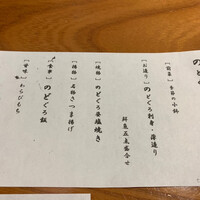 のどぐろ
【前菜】季節の小鉢
【お造り】のどぐろ刺身・薄造り
鮮魚五点盛合せ
【焼物】のどぐろ姿塩焼き
【揚物】名物さつま揚げ
【食事】のどぐろ飯
【甘味】わらびもち